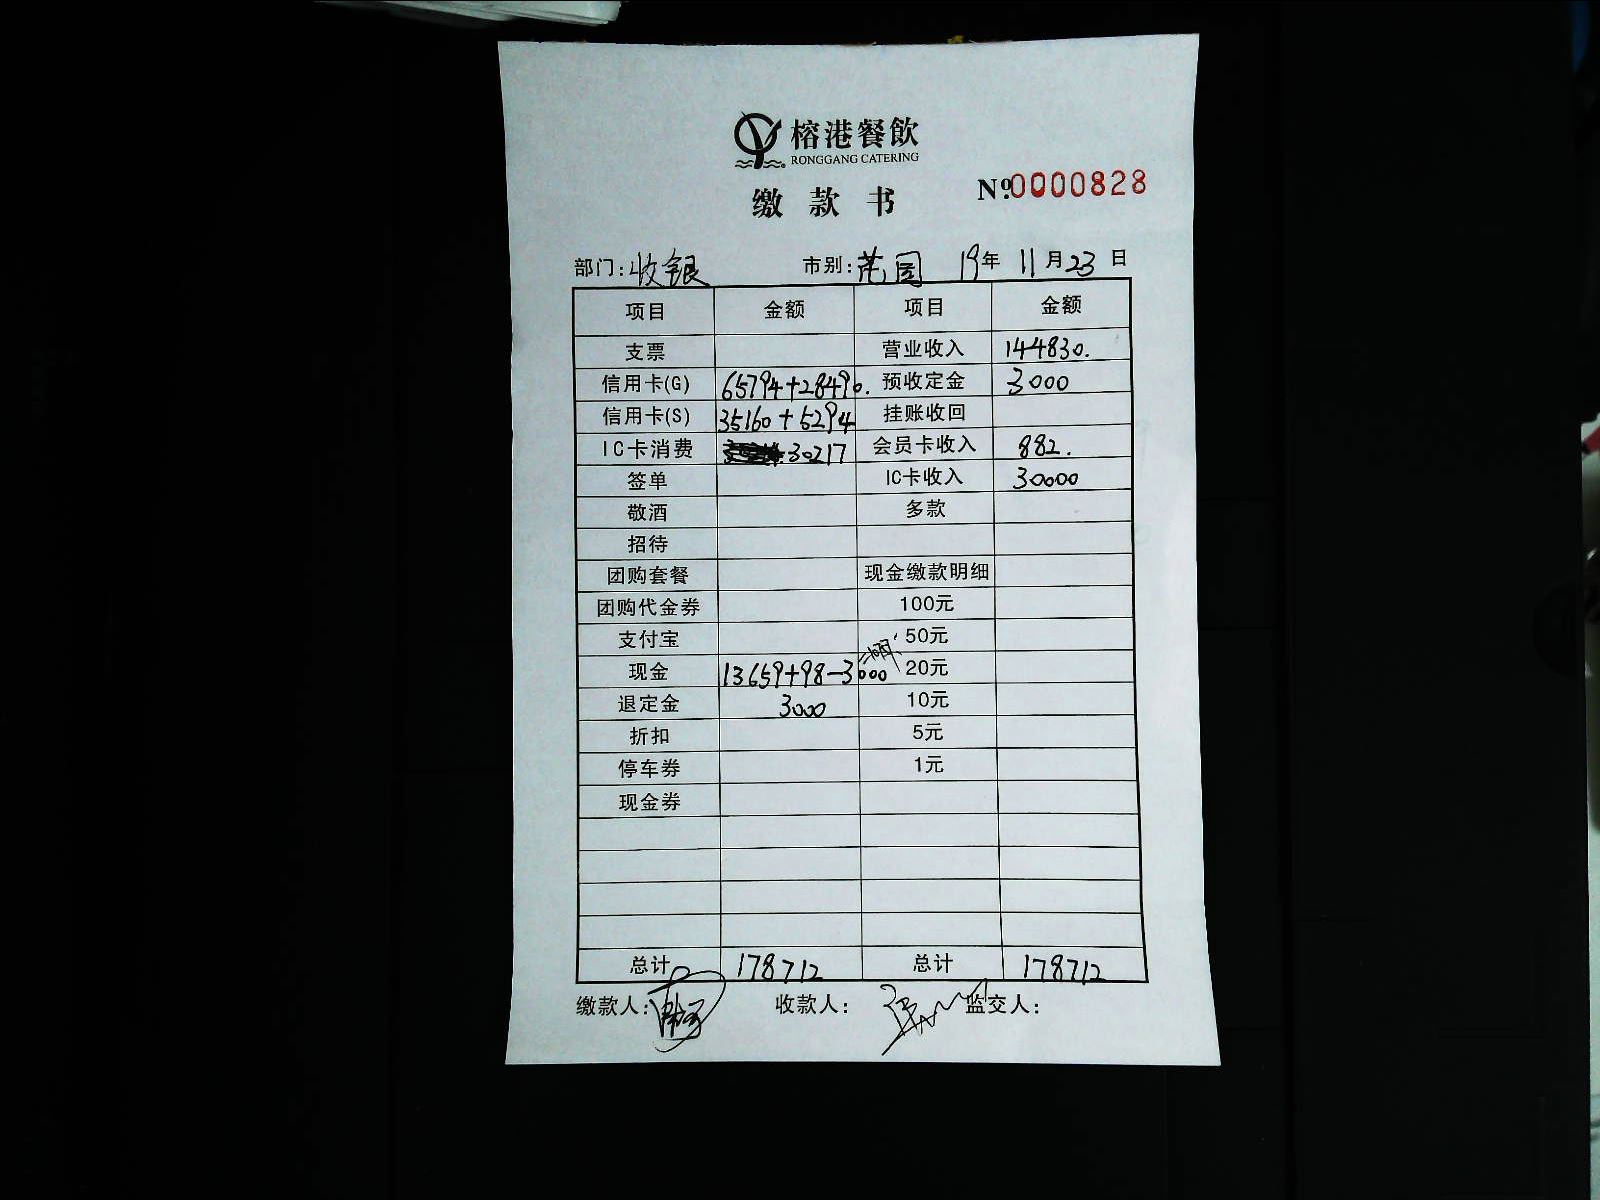 榕港餐飲
RONGGANG CATERING
缴款书
№0000828
部门:收银 市别: 19年 11月23日
项目 金额 项目 金额
支票 营业收入 144830.
信用卡(G) 65794+28490. 预收定金 3000
信用卡(S) 35160+5294 挂账收回
IC卡消费 30217 会员卡收入 882.
签单 IC卡收入 30000
敬酒 多款
招待
团购套餐 现金缴款明细
团购代金券 100元
支付宝 50元
现金 13659+98-3000 20元
退定金 3000 10元
折扣 5元
停车券 1元
现金券
总计 178712 总计 178712
缴款人: 收款人: 监交人: